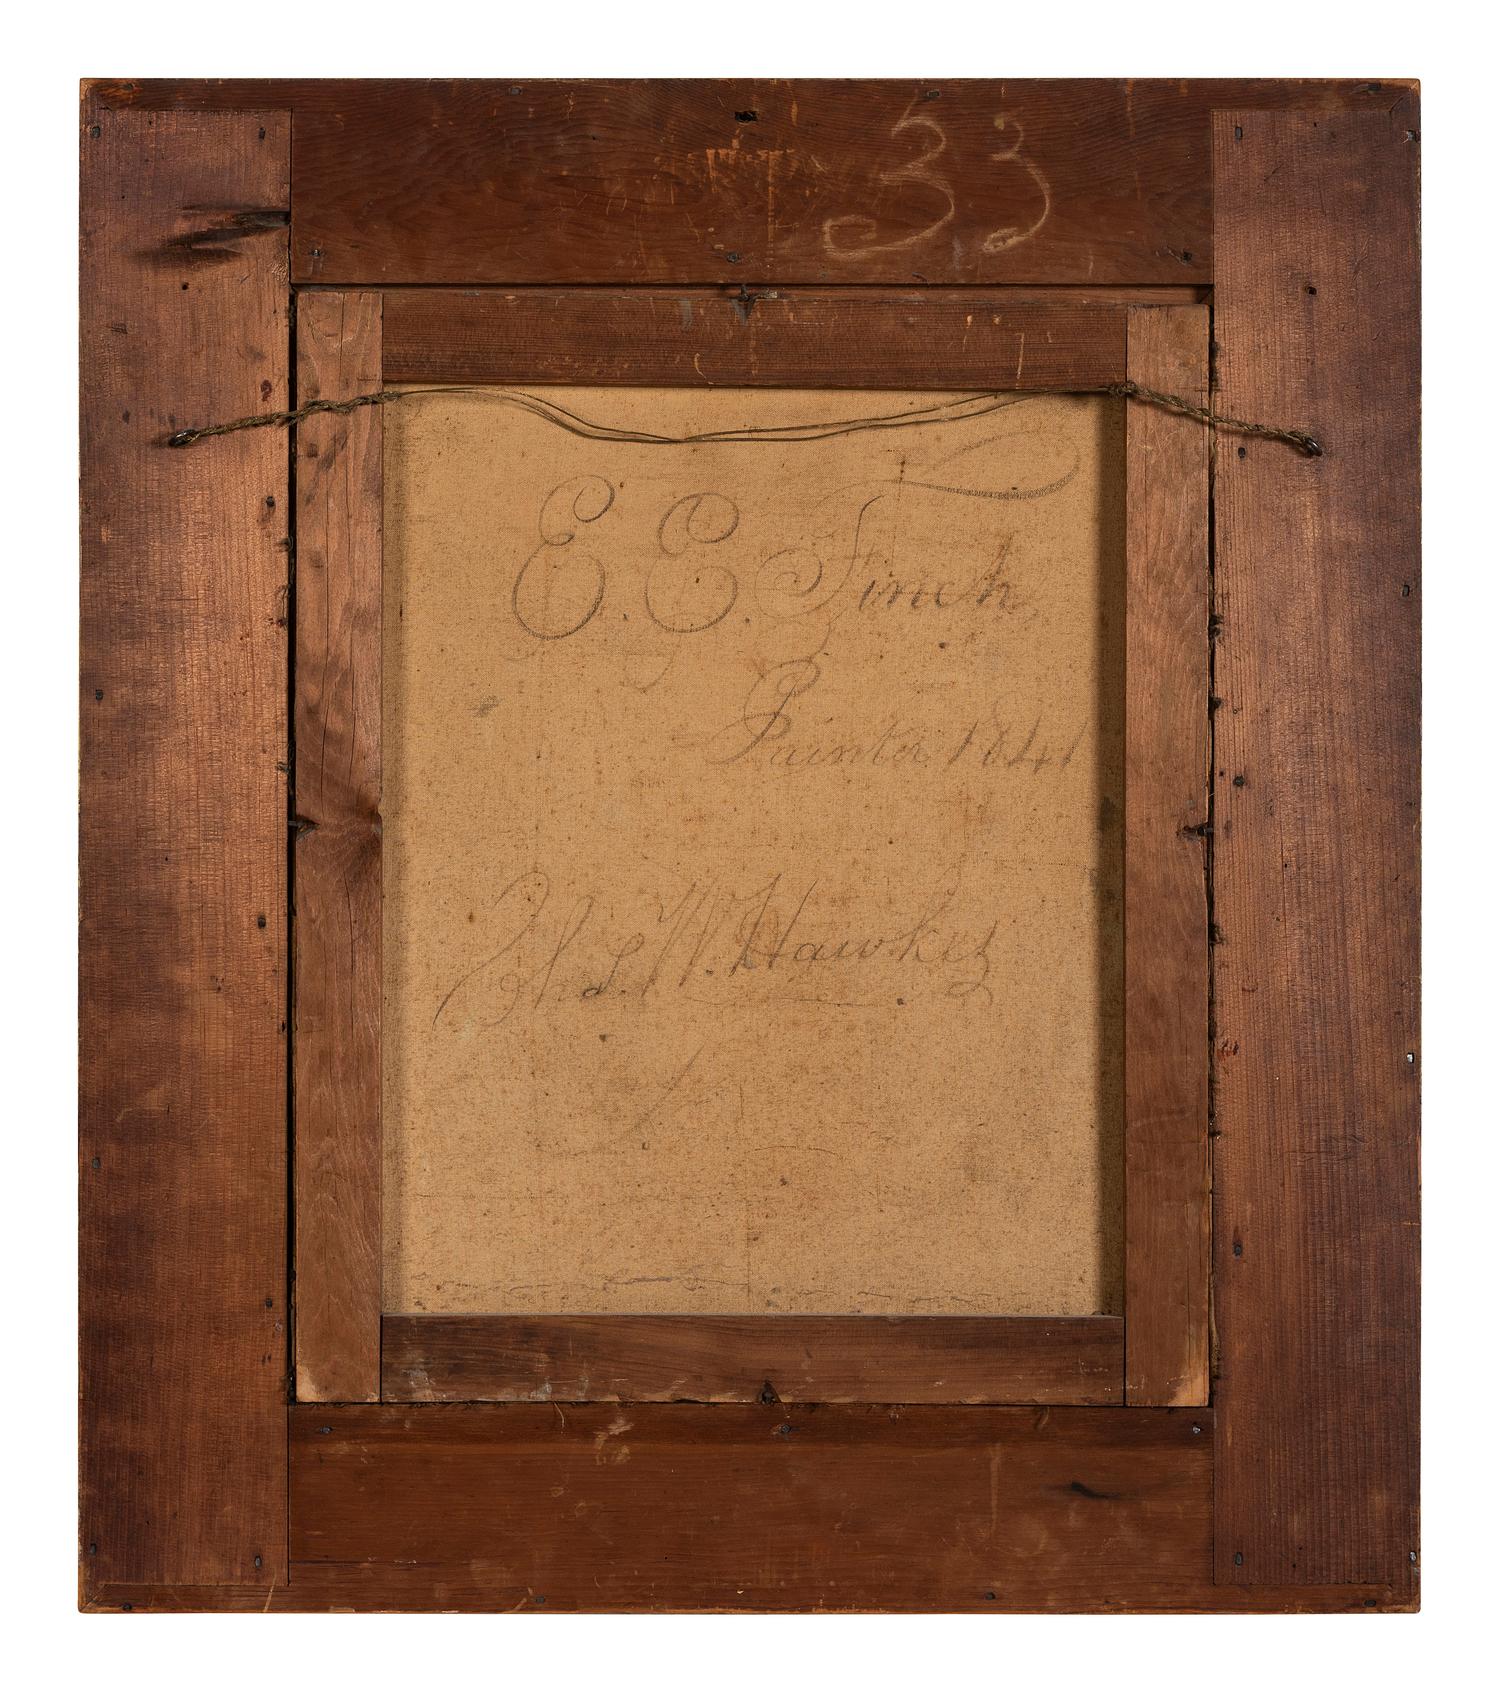 33
E. E. Finch
Painter 1841
W. Hawkes